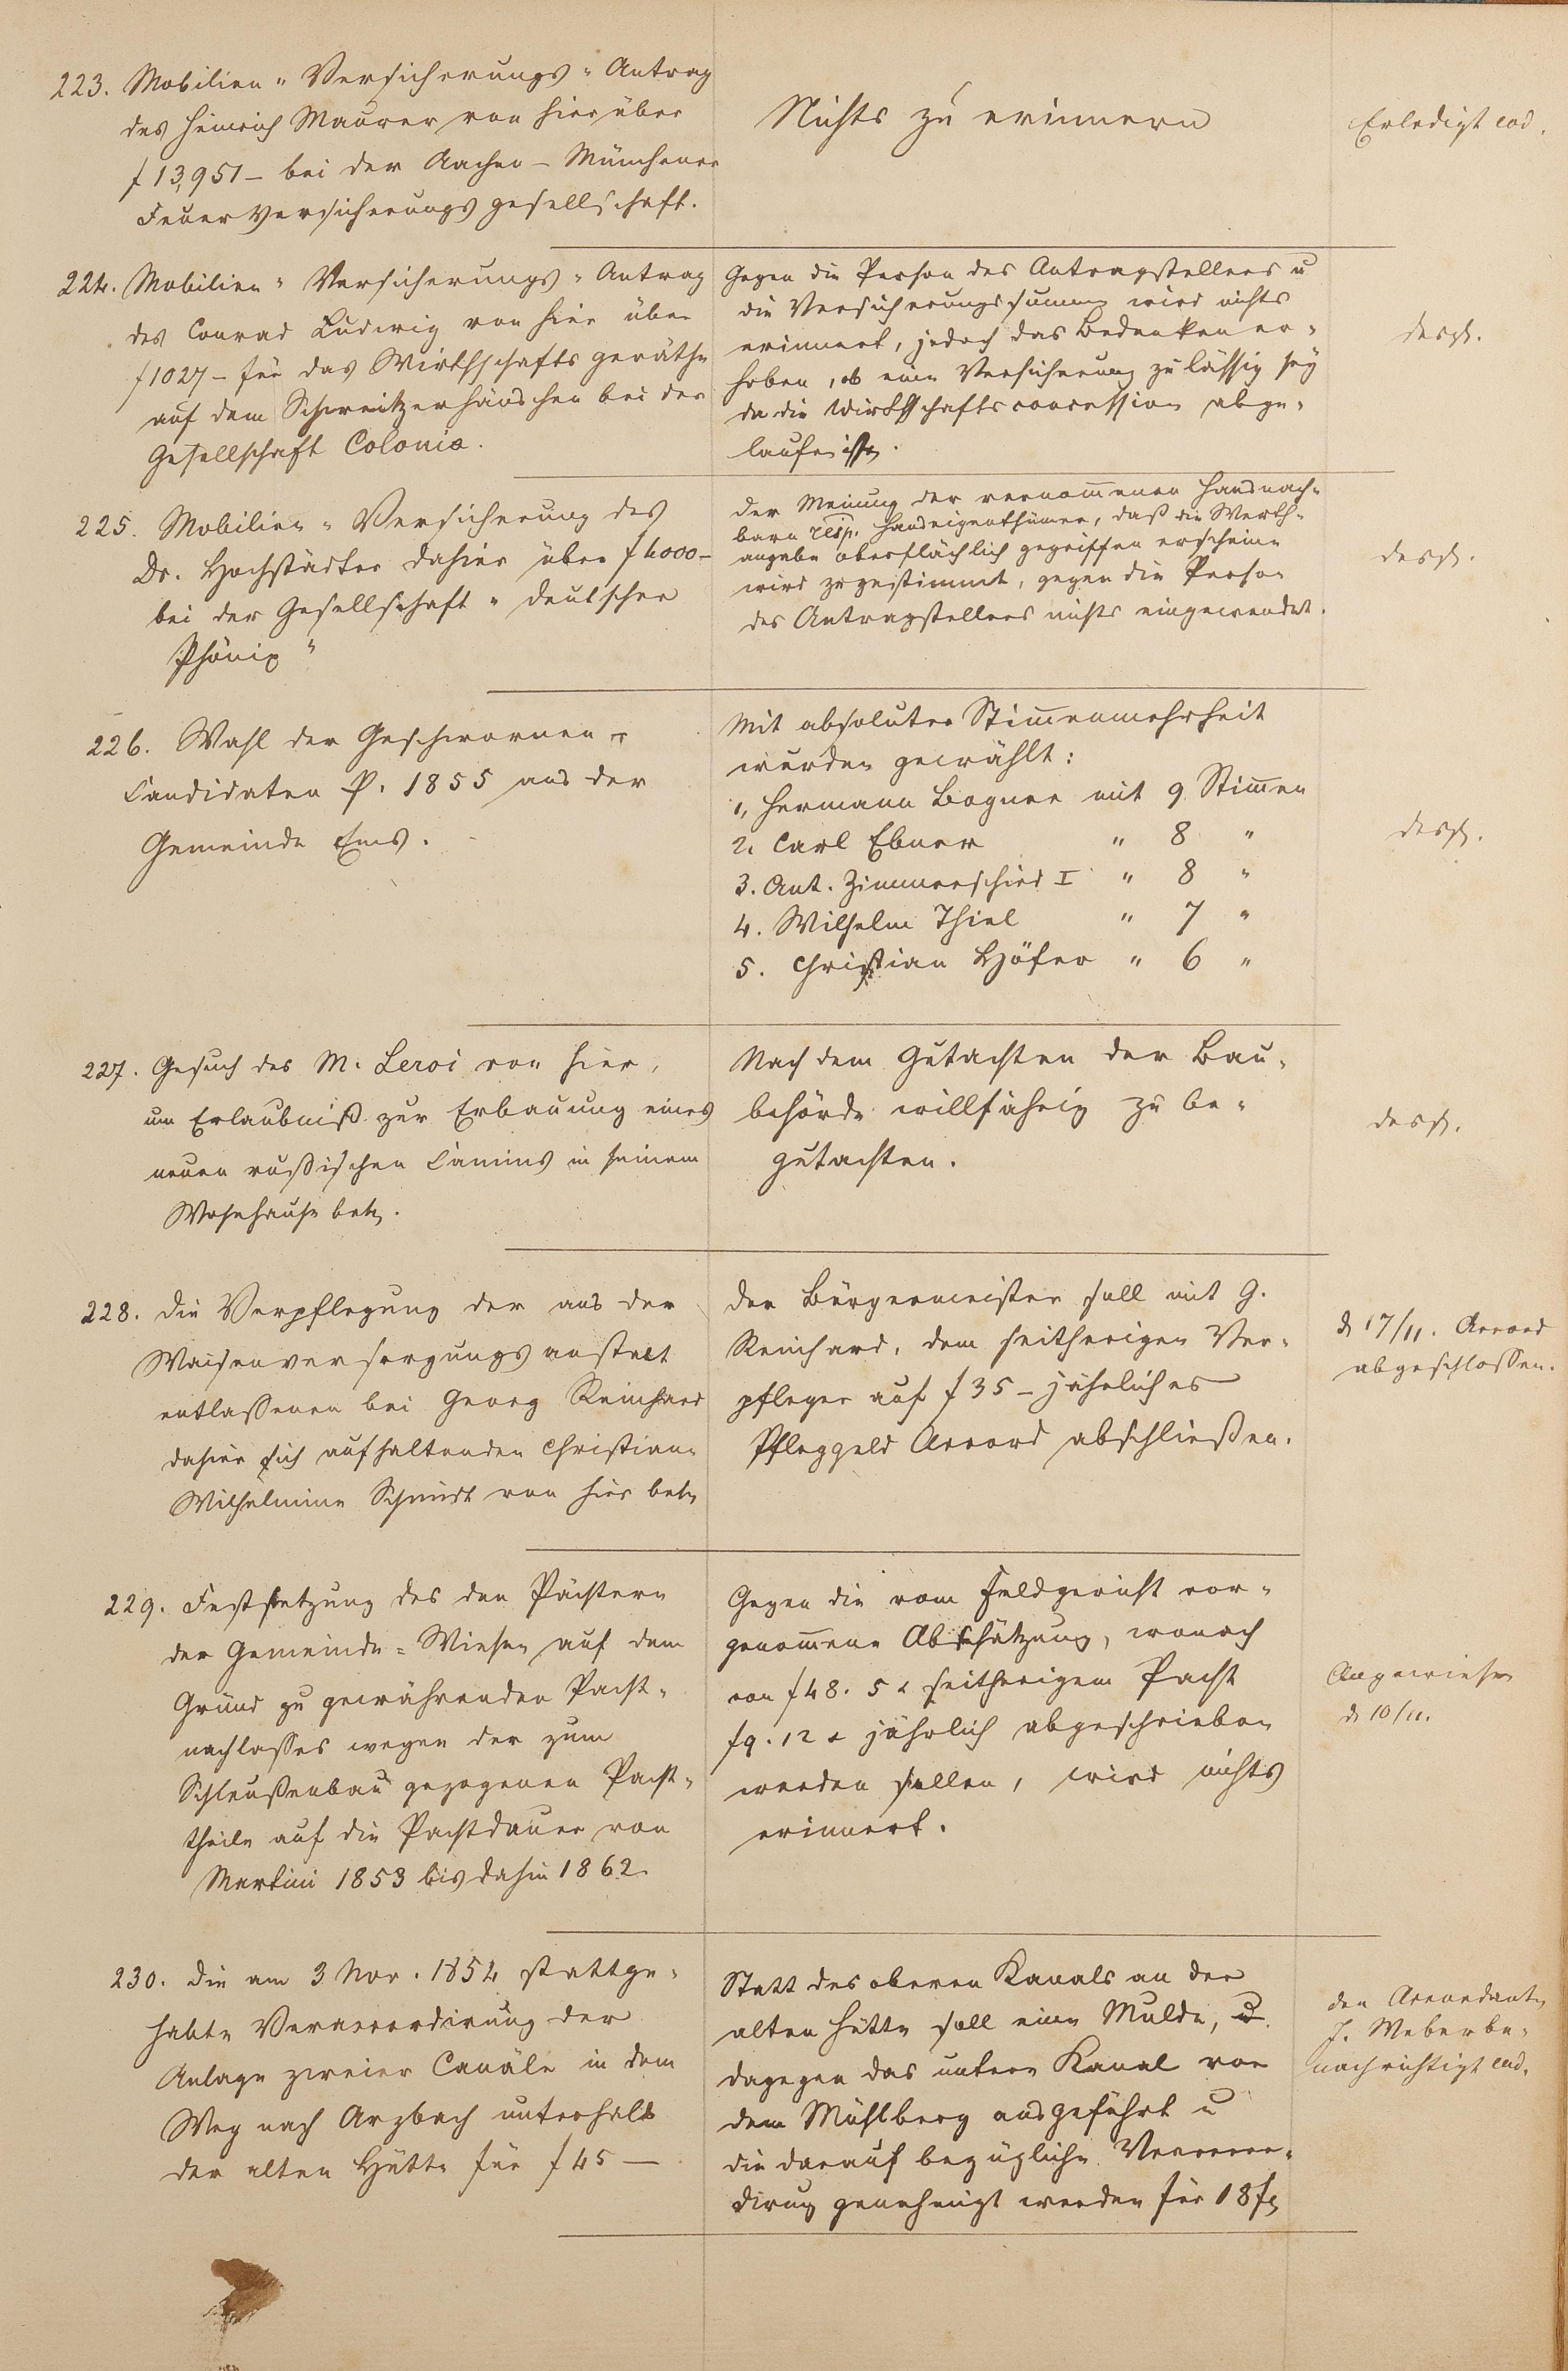 223. Mobilien-Versicherungs-Antrag
des Heinrich Maurer von hier über
f 13,951 – bei der Aachen-Münchener
Feuerversicherungsgesellschaft.
Nichts zu erinnern
Erledigt eod.
224. Mobilien-Versicherungs-Antrag
des Conrad Ludwig von hier über
f 1027 – für das Wirthschaftsgeräthe
auf dem Schweitzerhäuschen bei der
Gesellschaft Colonia.
Gegen die Person des Antragstellers u
die Versicherungssumme wird nichts
erinnert, jedoch das Bedenken er-
hoben, ob eine Versicherung zulässig sey
da die Wirthschaftsconcession abge-
laufen ist.
desgl.
225. Mobilien-Versicherung des
Dr. Hochstädter dahier über f 4000 –
bei der Gesellschaft "deutscher
Phönix"
Der Meinung der vernommenen Hausnach-
barn resp. Hauseigenthümer, daß die Werth-
angabe oberflächlich gegriffen erscheine
wird zugestimmt, gegen die Person
des Antragstellers nichts eingewendet.
desgl.
226. Wahl der Geschwornen-
Candidaten p. 1855 aus der
Gemeinde Ems.
Mit absoluter Stimmenmehrheit
wurden gewählt:
1, Hermann Bogner mit 9 Stimmen
2. Carl Ebner " 8 "
3. Ant. Zimmerschied I " 8 "
4. Wilhelm Thiel " 7 "
5. Christian Höfer " 6 "
desgl.
227. Gesuch des M. Leroi von hier,
um Erlaubniß zur Erbauung eines
neuen russischen Camins in seinem
Wohnhause betr.
Nach dem Gutachten der Bau-
behörde willfährig zu be-
gutachten.
desgl.
228. Die Verpflegung der aus der
Waisenversorgungsanstalt
entlassenen bei Georg Reinhard
dahier sich aufhaltenden Christiane
Wilhelmine Schmidt von hier betr
Der Bürgermeister soll mit G.
Reinhard, dem seitherigen Ver-
pfleger auf f 35 – jährliches
Pfleggeld Accord abschließen.
d 17/11. Accord
abgeschlossen.
229. Festsetzung des den Pächtern
der Gemeinde-Wiesen auf dem
Grund zu gewährenden Pacht-
nachlasses wegen der zum
Schleußenbau gezogenen Pacht-
theile auf die Pachtdauer von
Martini 1853 bis dahin 1862.
Gegen die vom Feldgericht vor-
genommene Abschätzung, wonach
von f 48. 5 x seitherigem Pacht
f 9. 12 x jährlich abgeschrieben
werden sollen, wird nichts
erinnert.
Angewiesen
d 10/11.
230. Die am 3 Nov. 1854 stattge-
habte Veraccordirung der
Anlage zweier Canäle in dem
Weg nach Arzbach unterhalb
der alten Hütte für f 45 –
Statt des oberen Kanals an der
alten Hütte soll eine Mulde, u.
dagegen das untere Kanal vor
dem Mühlberg ausgeführt u
die darauf bezügliche Veraccor-
dirung genehmigt werden für 18 f
den Accordanten
J. Weber be-
nachrichtigt eod.